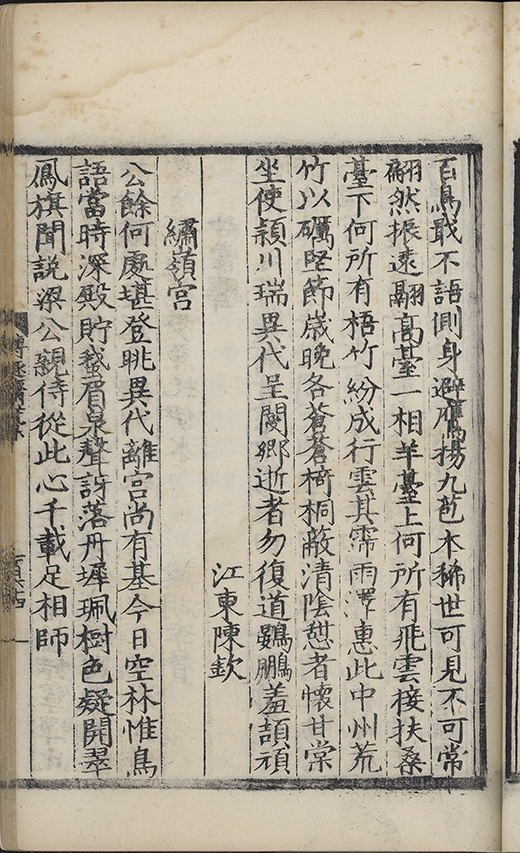 百鳥敢不語側身避鷹揚九苞本稀世可見不可常
翩然振遠翮高臺一相羊臺上何所有飛雲接扶桑
臺下何所有梧竹紛成行雲其霈雨澤惠此中州荒
竹以礪堅節歲晚各蒼蒼梧桐蔽清陰憩者懷甘棠
坐使潁川瑞異代呈閿鄉逝者勿復道鷃鵬羞頡頏
江東陳欽
繡嶺宮
公餘何處堪登眺異代離宮尚有基今日空林惟鳥
語當時深殿貯蛾眉泉聲訝落丹墀珮樹色疑開翠
鳳旗聞說梁公親侍從此心千載足相師